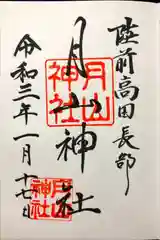 陸前高田長部
月山神社
月山
神社
令和三年一月十七日
月山
神社